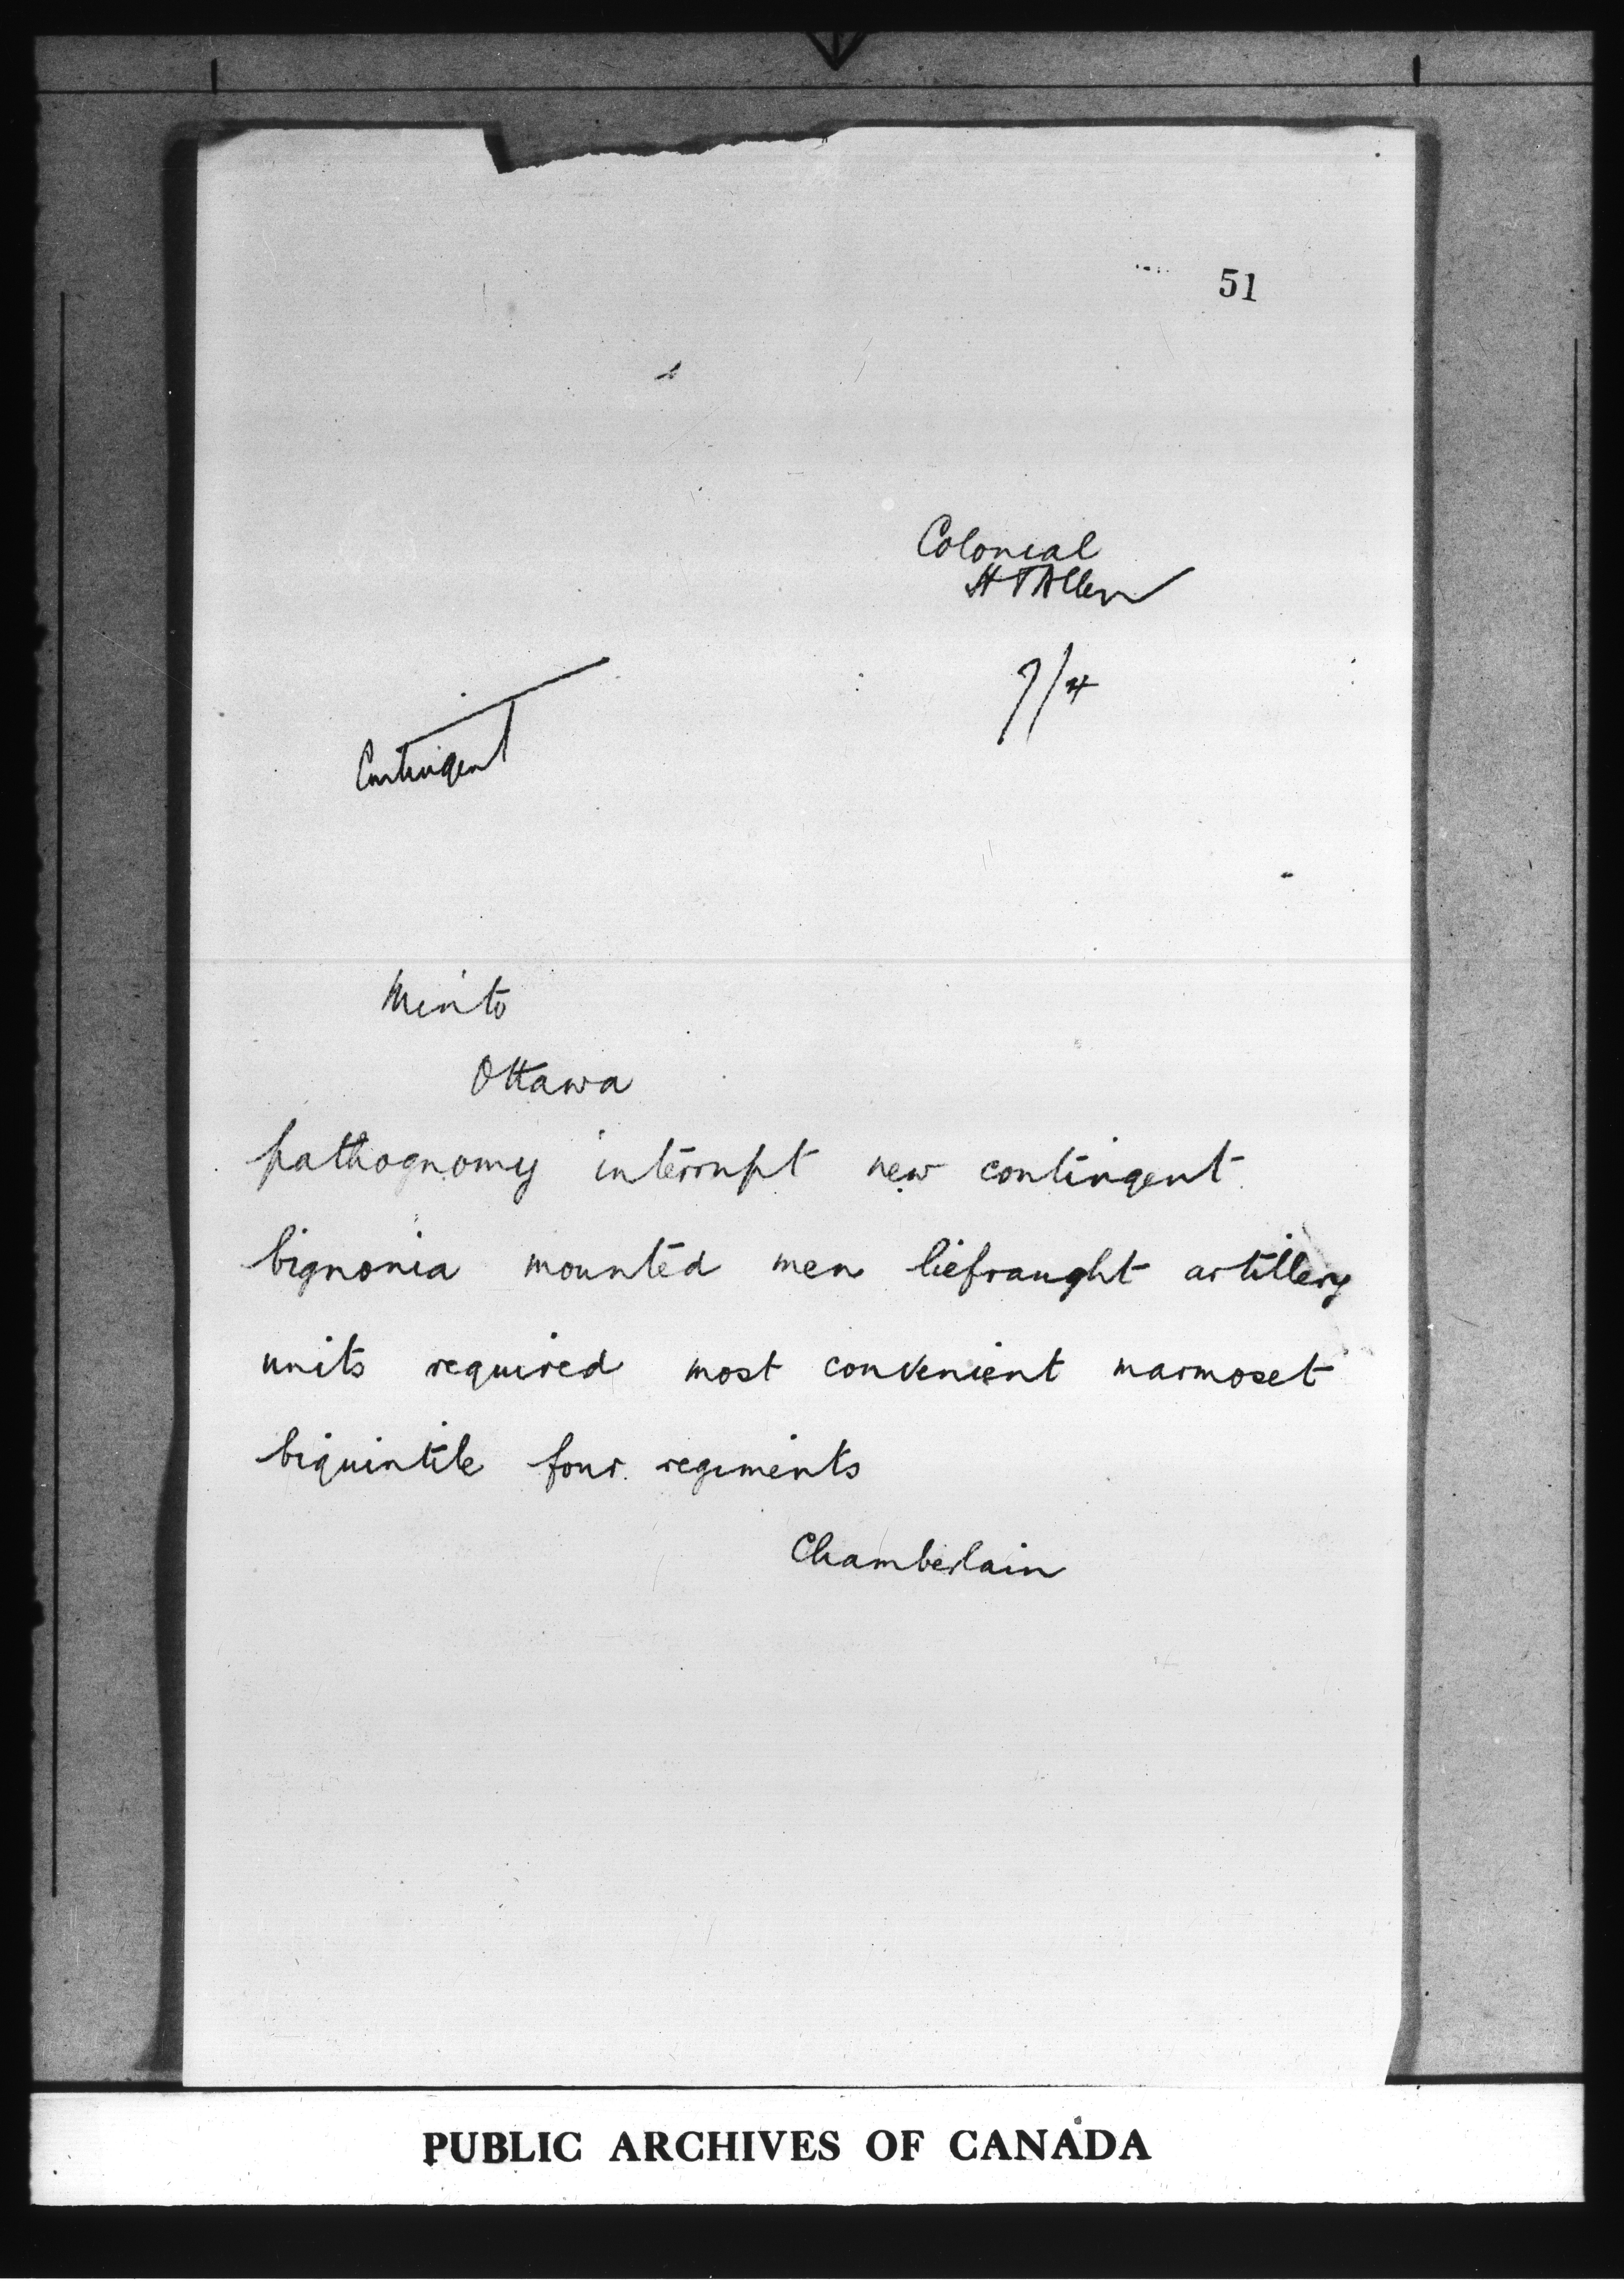 51
Colonial
H T Allen
7/4
Contingent
Minto
Ottawa
pathognomy interrupt new contingent
bignonia mounted men liefraught artillery
units required most convenient marmoset
biquintile four regiments
Chamberlain
PUBLIC ARCHIVES OF CANADA